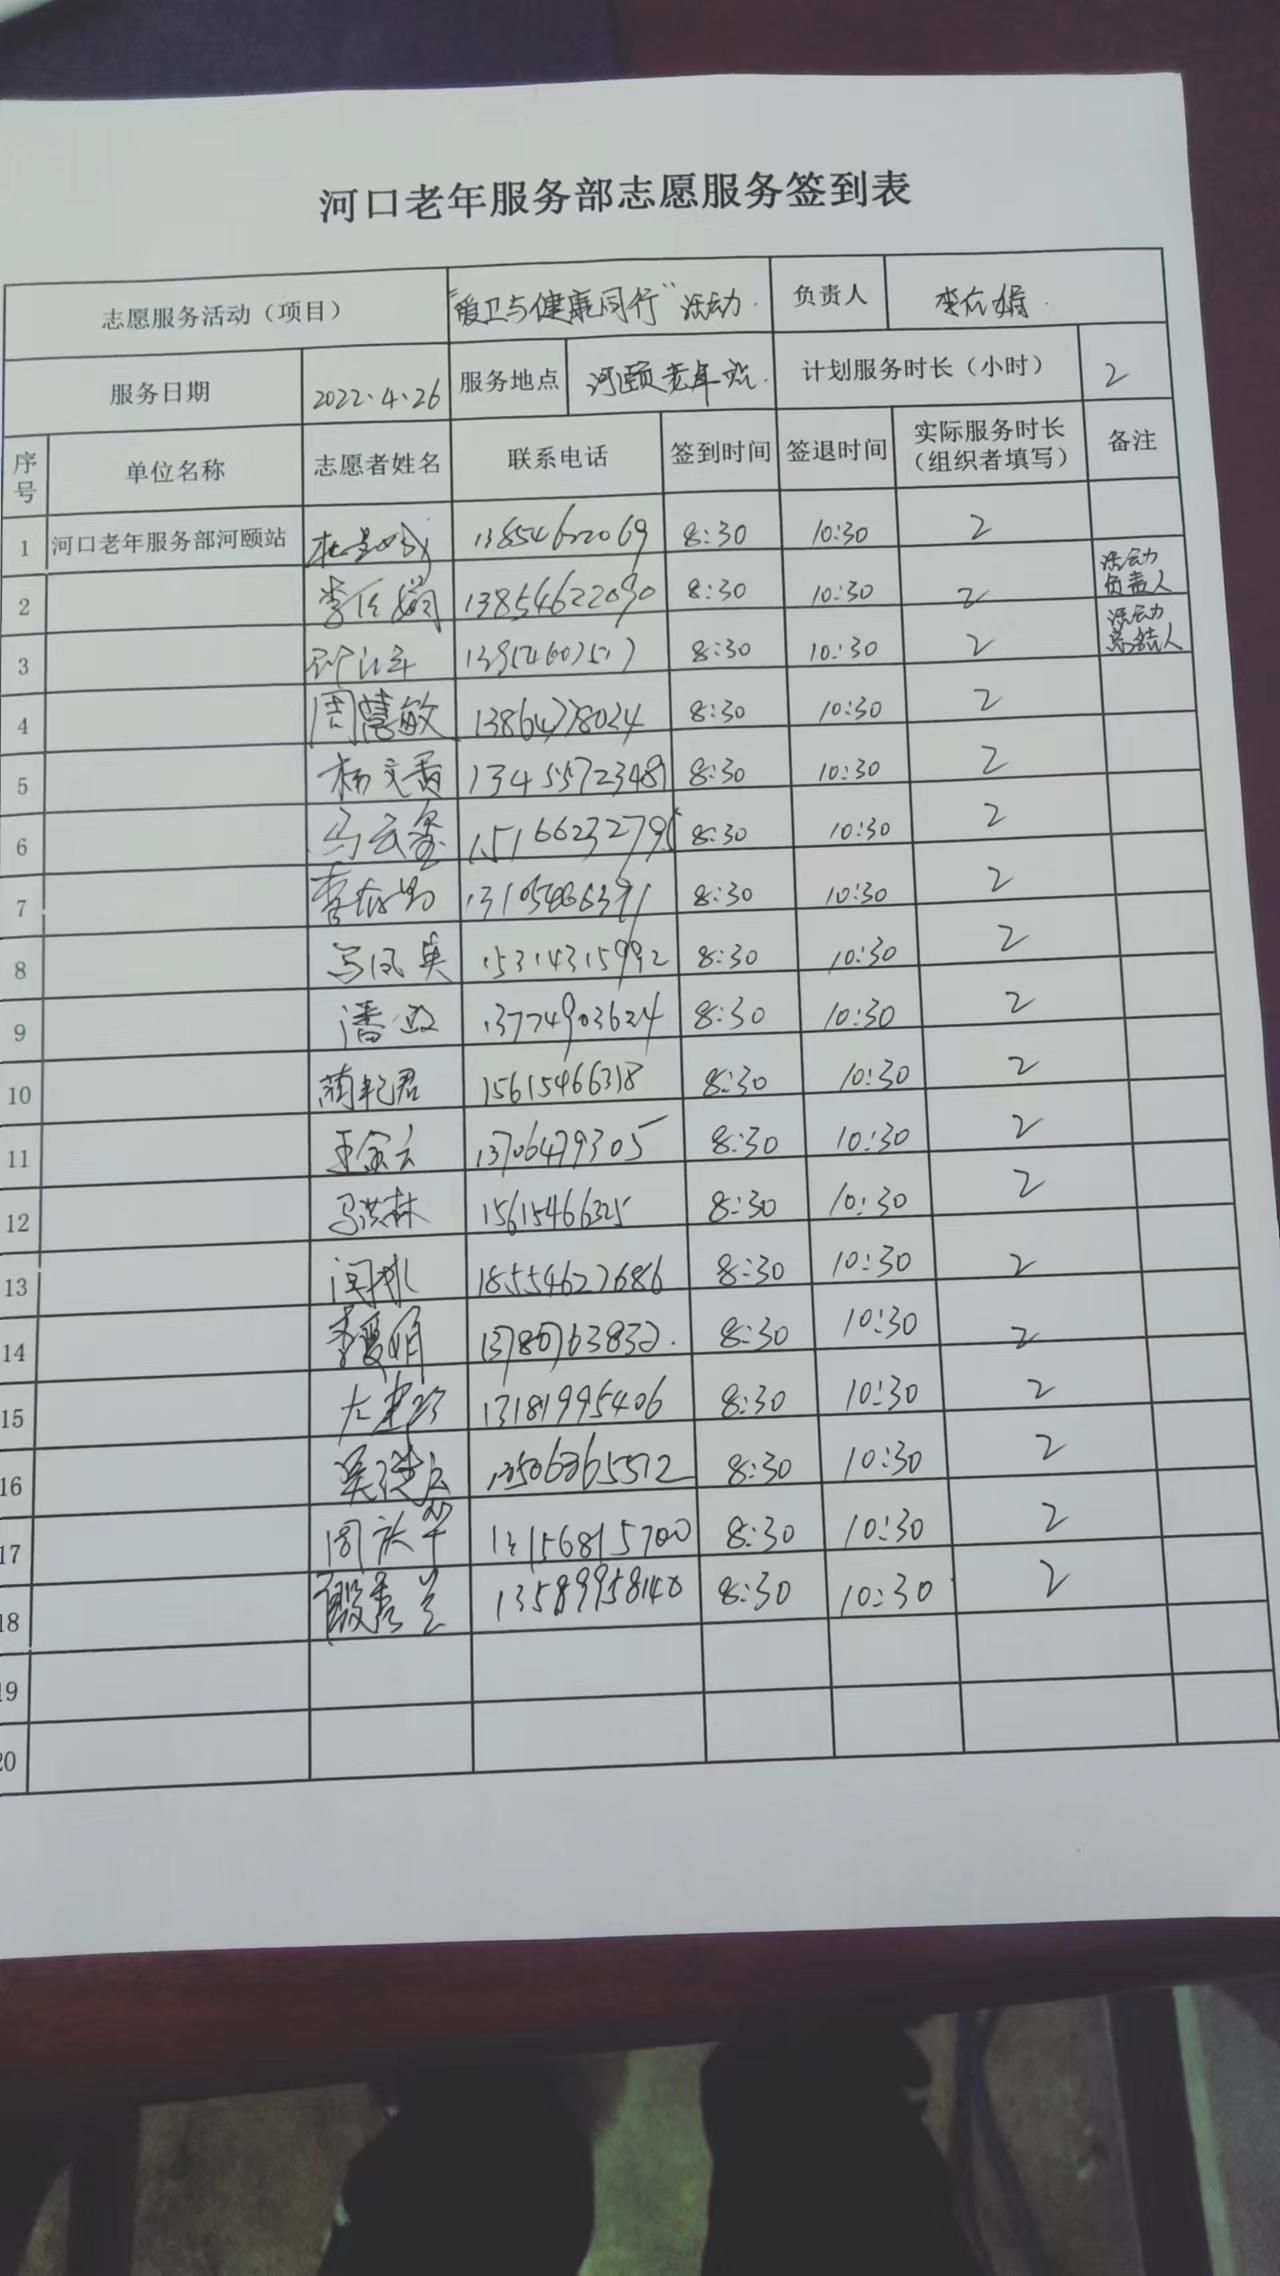 河口老年服务部志愿服务签到表
志愿服务活动（项目） "爱卫与健康同行"活动. 负责人
服务日期 2022.4.26 服务地点 河颐老年站. 计划服务时长（小时） 2
序号 单位名称 志愿者姓名 联系电话 签到时间 签退时间 实际服务时长（组织者填写） 备注
1 河口老年服务部河颐站 8:30 10:30 2
2 13854622090 8:30 10:30 2 活动负责人
3 8:30 10:30 2 活动总结人
4 周慧敏 13864778034 8:30 10:30 2
5 杨文香 13455723489 8:30 10:30 2
6 15166232795 8:30 10:30 2
7 8:30 10:30 2
8 马凤英 15314315992 8:30 10:30 2
9 潘 13774903624 8:30 10:30 2
10 蔺艳君 15615466318 8:30 10:30 2
11 王金云 13706479305 8:30 10:30 2
12 马洪林 15615466325 8:30 10:30 2
13 18554627686 8:30 10:30 2
14 李爱娟 13780763832. 8:30 10:30 2
15 13181995406 8:30 10:30 2
16 8:30 10:30 2
17 13156815700 8:30 10:30 2
18 殷秀兰 13589958148 8:30 10:30 2
19
20